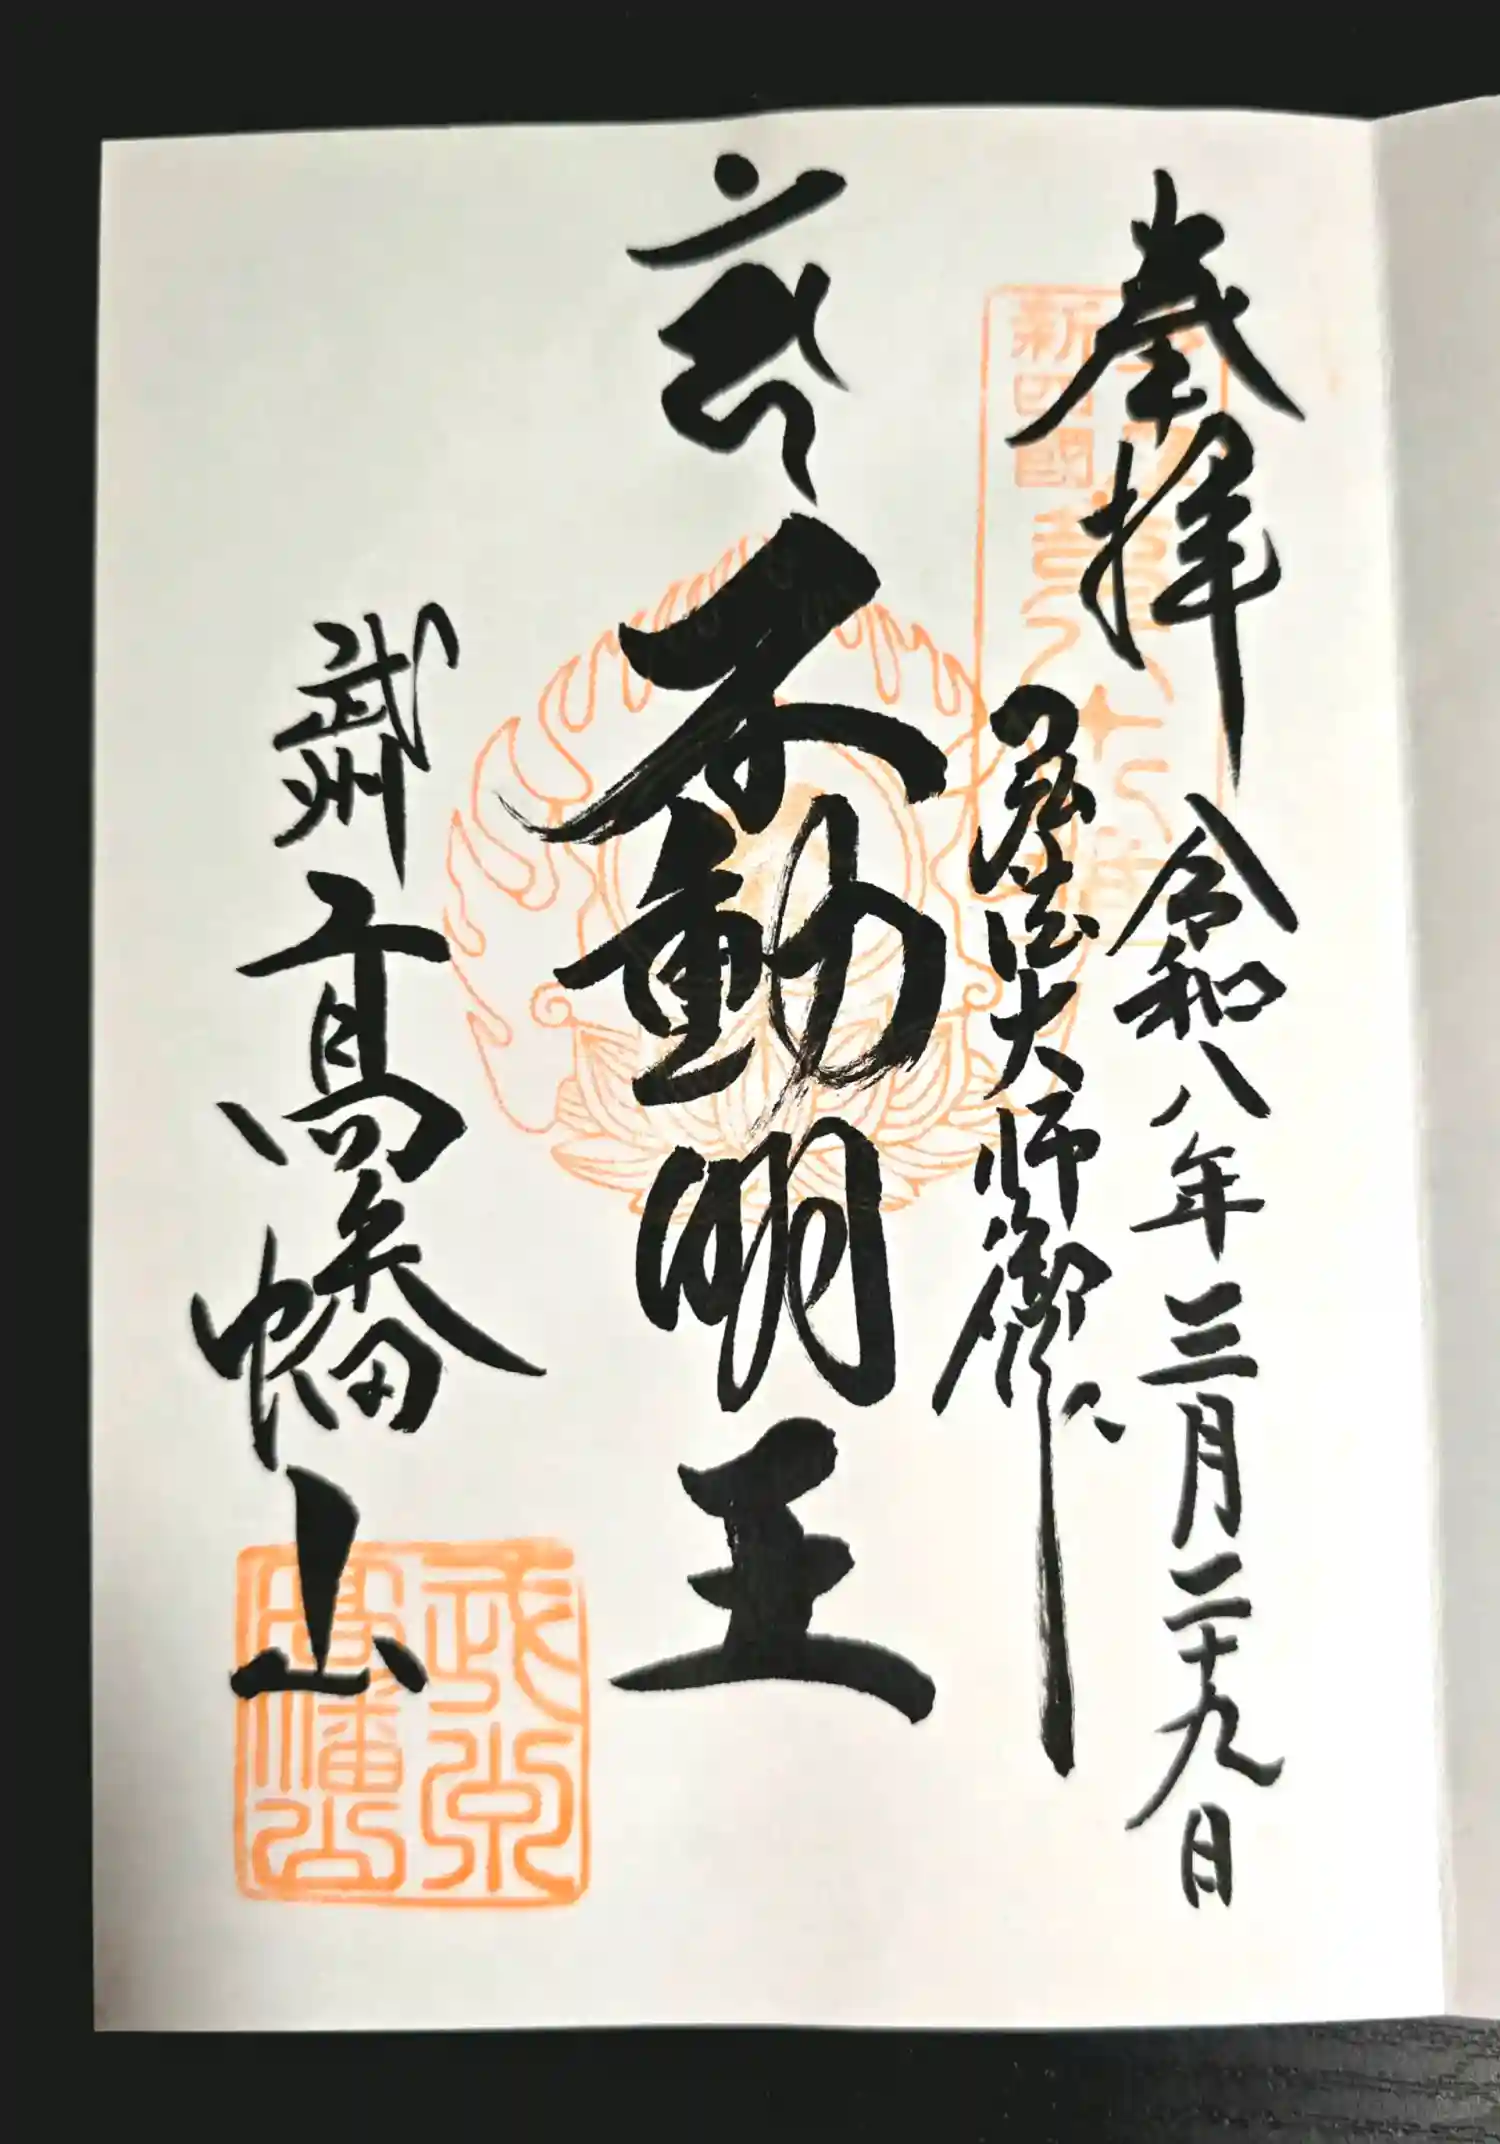 奉拝 令和八年三月二十九日
大師御作
不動明王
武州 高幡山
新四國
高幡山